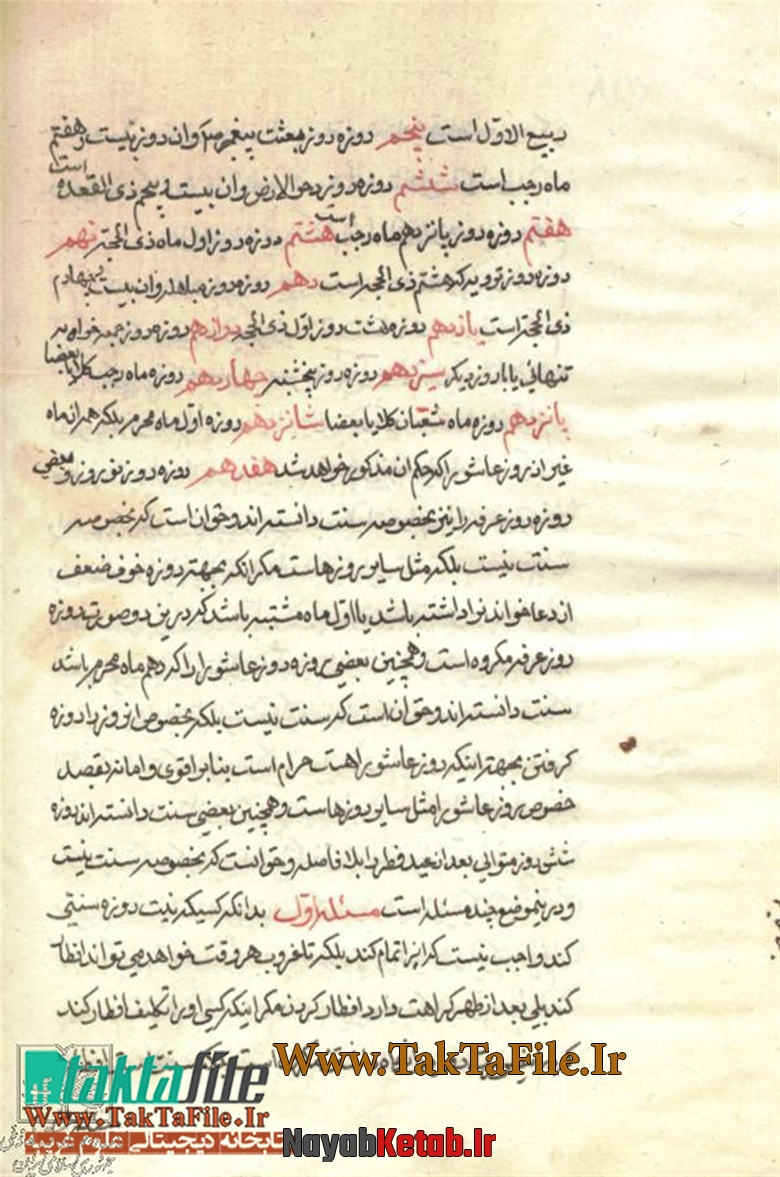 ربیع الاول است پنجم روزه روز مبعث پیغمبر ص و آن روز بیست و هفتم
ماه رجب است ششم روزه روز دحو الارض و آن بیست و پنجم ذی القعده است
هفتم روزه روز پانزدهم ماه رجب است هشتم روزه روز اول ماه ذی الحجه نهم
روزه روز ترویه که هشتم ذی الحجه است دهم روزه روز مباهله و آن بیست چهارم
ذی الحجه است یازدهم روزه هشت روز اول ذی الحجه دوازدهم روزه روز جمعه خواه به
تنهائی یا با روز دیگر سیزدهم روزه روز پنجشنبه چهاردهم روزه ماه رجب کلا یا بعضا
پانزدهم روزه ماه شعبان کلا یا بعضا شانزدهم روزه اول ماه محرم بلکه همه آن ماه
غیر از روز عاشورا که حکم آن مذکور خواهد شد هفدهم روزه روز نوروز و بعضی
روزه روز عرفه را نیز بخصوصه سنت دانسته اند و حق آن است که بخصوصه
سنت نیست بلکه مثل سایر روزهاست مگر آنکه بجهة روزه خوف ضعف
از دعا خواندن داشته باشد یا اول ماه مشتبه باشد که درین دو صورت روزه
روز عرفه مکروه است و همچنین بعضی روزه روز عاشورا را که دهم ماه محرم باشد
سنت دانسته اند و حق آن است که سنت نیست بلکه بخصوص آن روز را روزه
گرفتن بجهة اینکه روز عاشورا هست حرام است بنابر اقوی و اما نه بقصد
خصوص روز عاشورا مثل سایر روزهاست و همچنین بعضی سنت دانسته اند روزه
شش روز متوالی بعد از عید فطر را بلا فاصله و حق آنست که بخصوصه سنت نیست
و در ینموضع چند مسئله است مسئله اول بدانکه کسیکه نیت روزه سنتی
کند واجب نیست که آنرا تمام کند بلکه تا غروب هر وقت خواهد می تواند افطار
کند بلی بعد از ظهر کراهت دارد افطار کردن مگر اینکه کسی او را تکلیف افطار کند
www.TakTaFile.Ir
taktafile
www.TakTaFile.Ir
کتابخانه دیجیتالی علوم غریبه
NayabKetab.ir